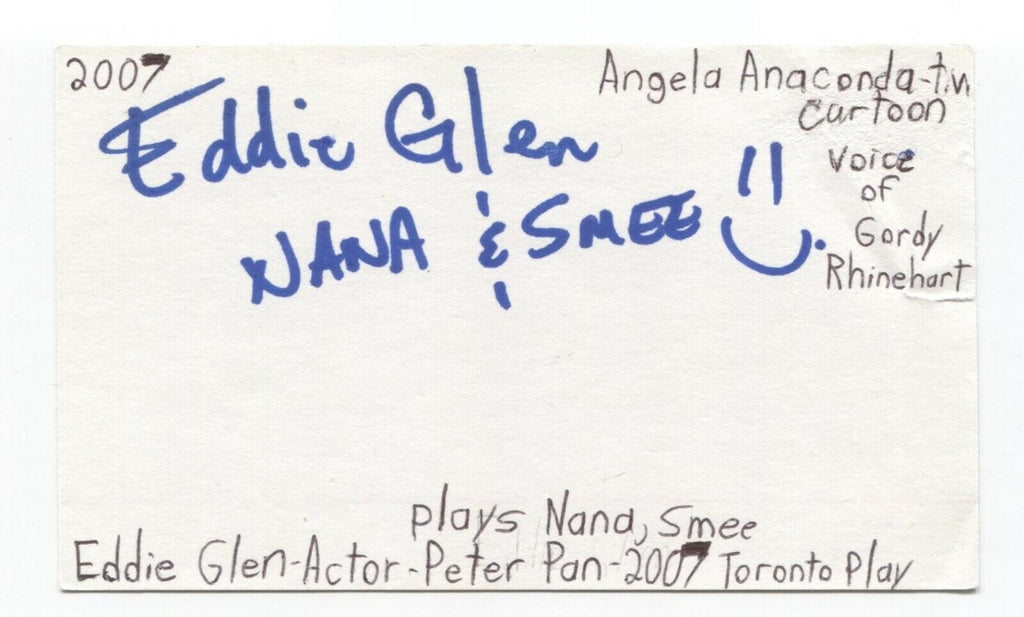 2007
Angela Anaconda-t.v
cartoon
Voice
of
Gordy
Rhinehart
Eddie Glen
NANA & SMEE
plays Nana, Smee
Eddie Glen-Actor-Peter Pan-2007 Toronto Play